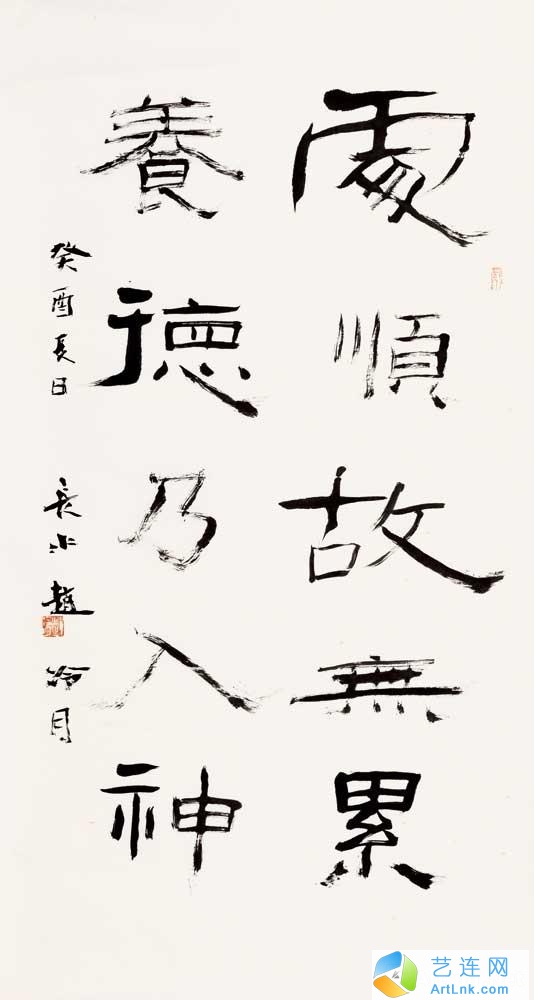 處順故無累
養德乃入神
癸酉長日 長水趙冷月
艺连网
ArtLnk.com